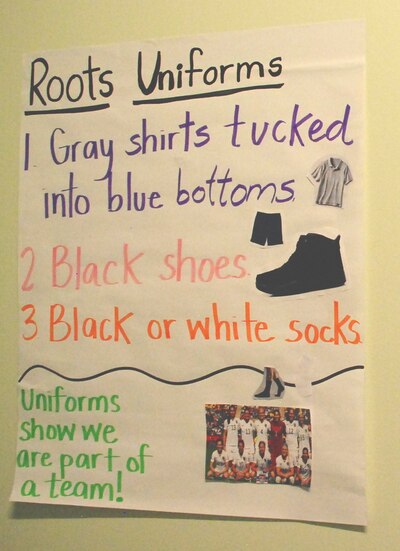 Roots Uniforms
1. Gray shirts tucked
into blue bottoms.
2 Black shoes.
3 Black or white socks.
Uniforms
show we
are part of
a team!